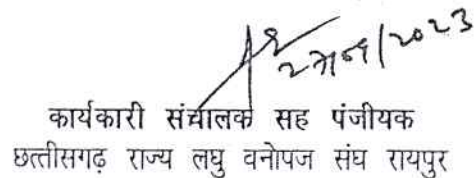 कार्यकारी संचालक सह पंजीयक
छत्तीसगढ़ राज्य लघु वनोपज संघ रायपुर